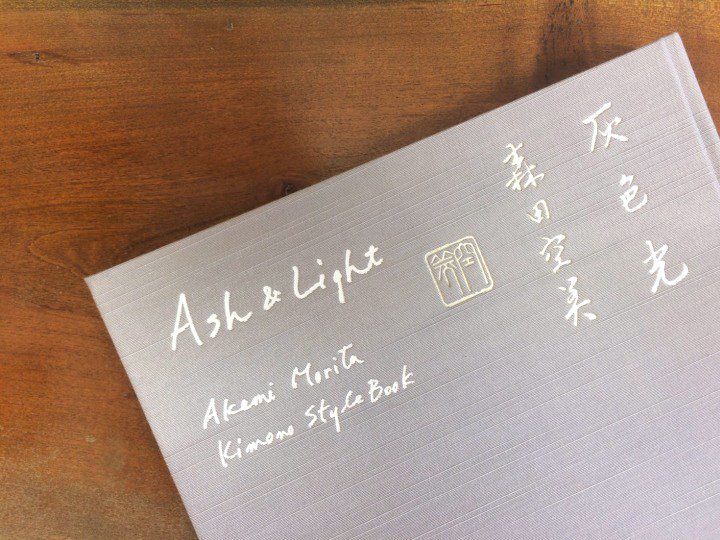 灰色光
森田空美
空美
Ash & Light
Akemi Morita
Kimono Style Book